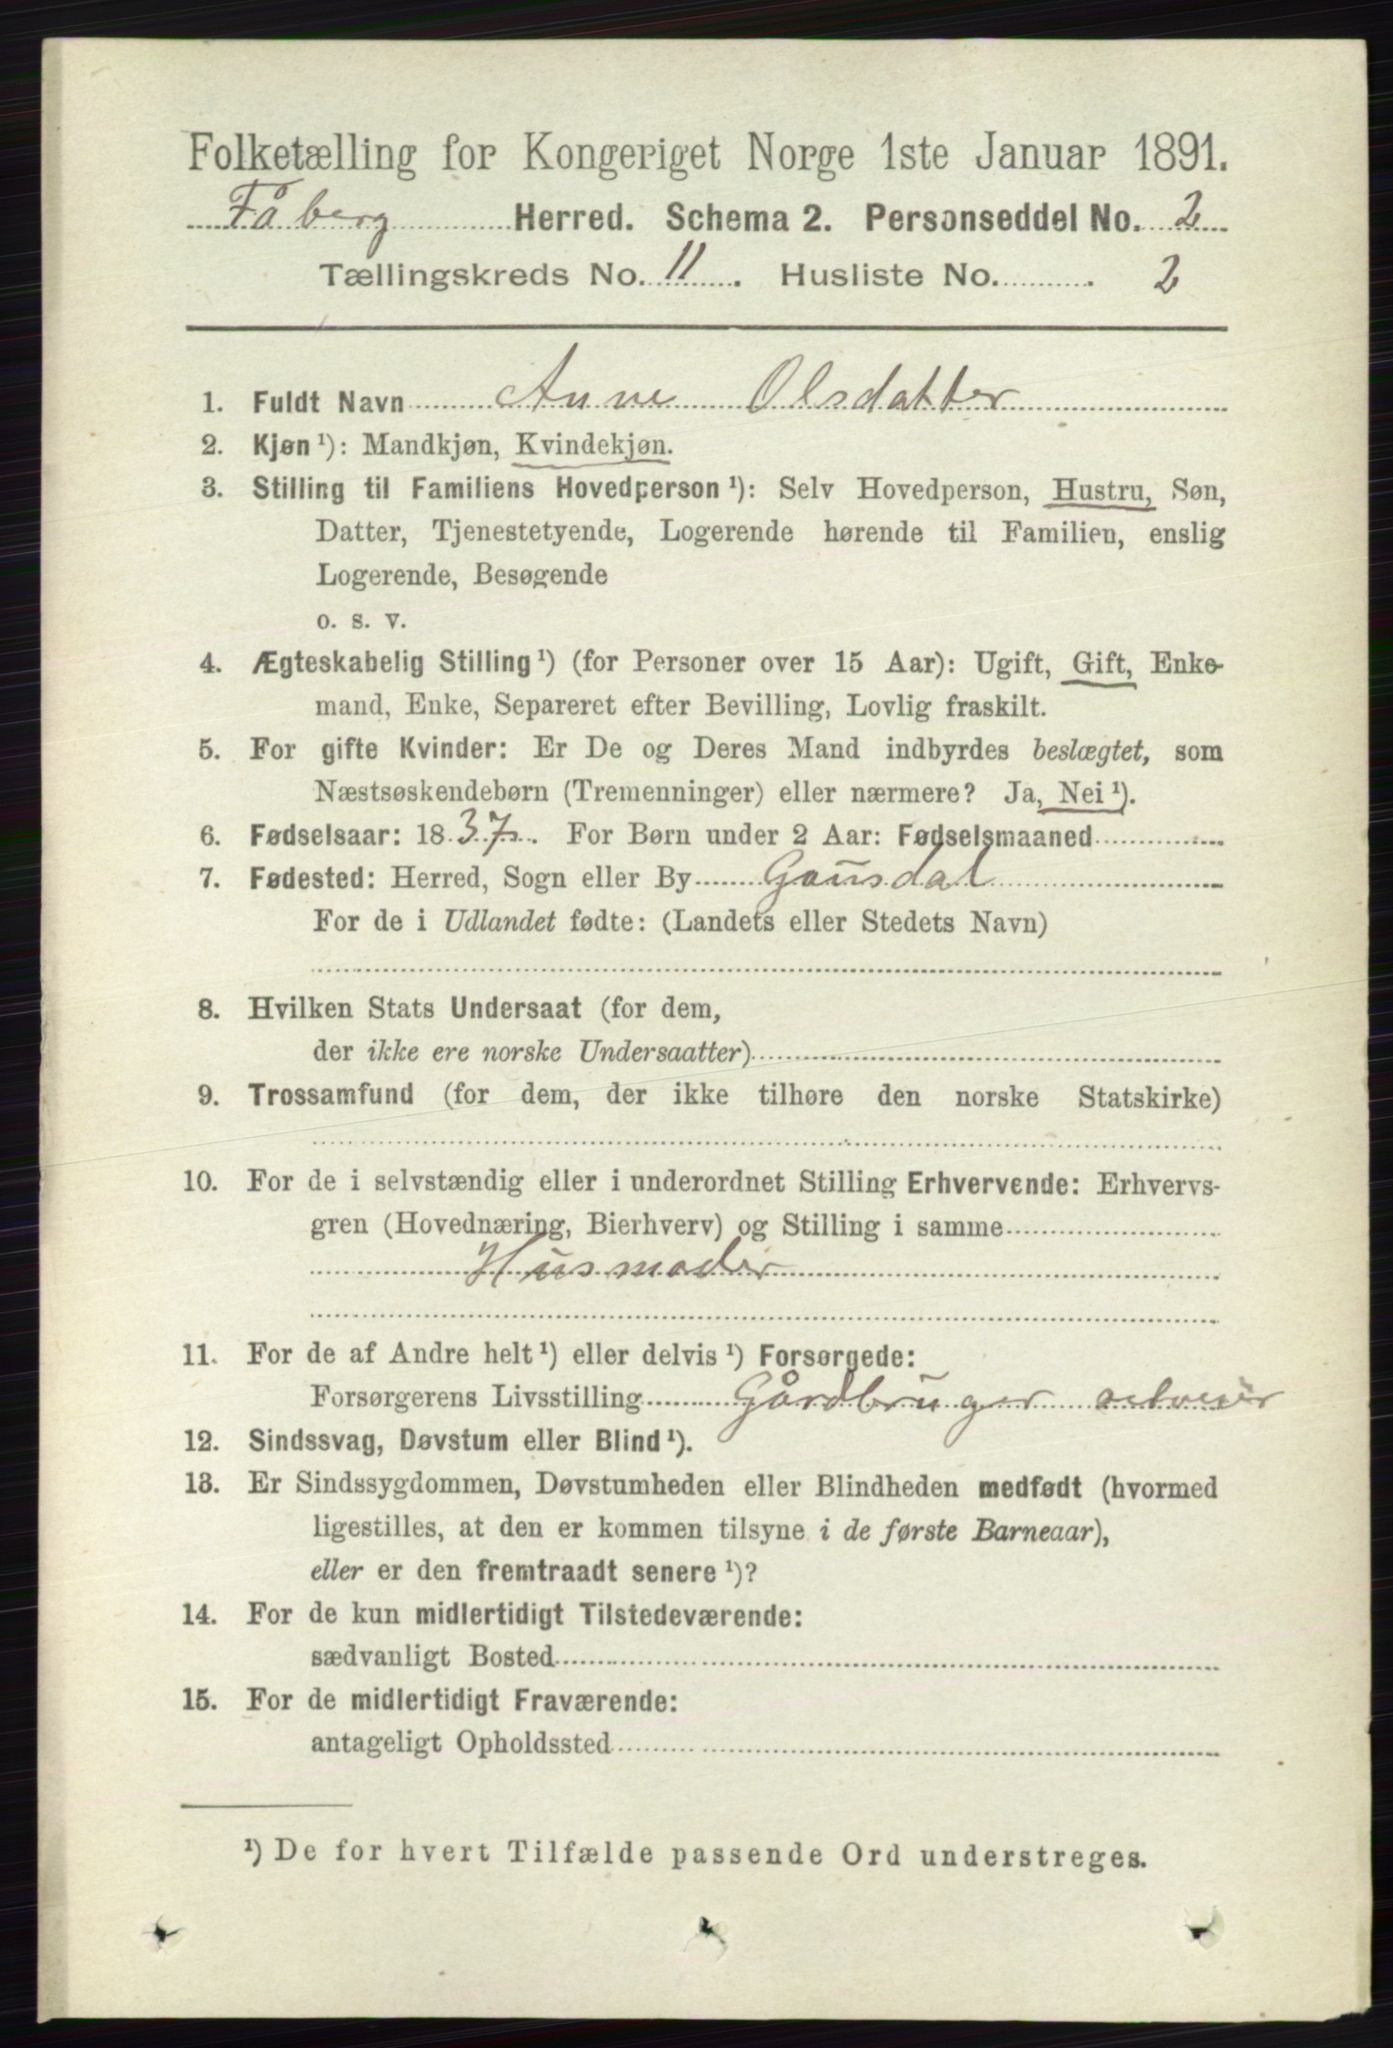 Folketælling for Kongeriget Norge 1ste Januar 1891.
Fåberg Herred. Schema 2. Personseddel No. 2
Tællingskreds No. 11. Husliste No. 2
1. Fuldt Navn Anne Olsdatter
2. Kjøn ¹): Mandkjøn, Kvindekjøn.
3. Stilling til Familiens Hovedperson ¹): Selv Hovedperson, Hustru, Søn,
Datter, Tjenestetyende, Logerende hørende til Familien, enslig
Logerende, Besøgende
o. s. v.
4. Ægteskabelig Stilling ¹) (for Personer over 15 Aar): Ugift, Gift, Enke-
mand, Enke, Separeret efter Bevilling, Lovlig fraskilt.
5. For gifte Kvinder: Er De og Deres Mand indbyrdes beslægtet, som
Næstsøskendebørn (Tremenninger) eller nærmere? Ja, Nei ¹).
6. Fødselsaar: 1837. For Børn under 2 Aar: Fødselsmaaned
7. Fødested: Herred, Sogn eller By Gausdal
For de i Udlandet fødte: (Landets eller Stedets Navn)
8. Hvilken Stats Undersaat (for dem,
der ikke ere norske Undersaatter)
9. Trossamfund (for dem, der ikke tilhøre den norske Statskirke)
10. For de i selvstændig eller i underordnet Stilling Erhvervende: Erhvervs-
gren (Hovednæring, Bierhverv) og Stilling i samme
Husmoder
11. For de af Andre helt ¹) eller delvis ¹) Forsørgede:
Forsørgerens Livsstilling Gårdbruger
12. Sindssvag, Døvstum eller Blind ¹).
13. Er Sindssygdommen, Døvstumheden eller Blindheden medfødt (hvormed
ligestilles, at den er kommen tilsyne i de første Barneaar),
eller er den fremtraadt senere ¹)?
14. For de kun midlertidigt Tilstedeværende:
sædvanligt Bosted
15. For de midlertidigt Fraværende:
antageligt Opholdssted
¹) De for hvert Tilfælde passende Ord understreges.